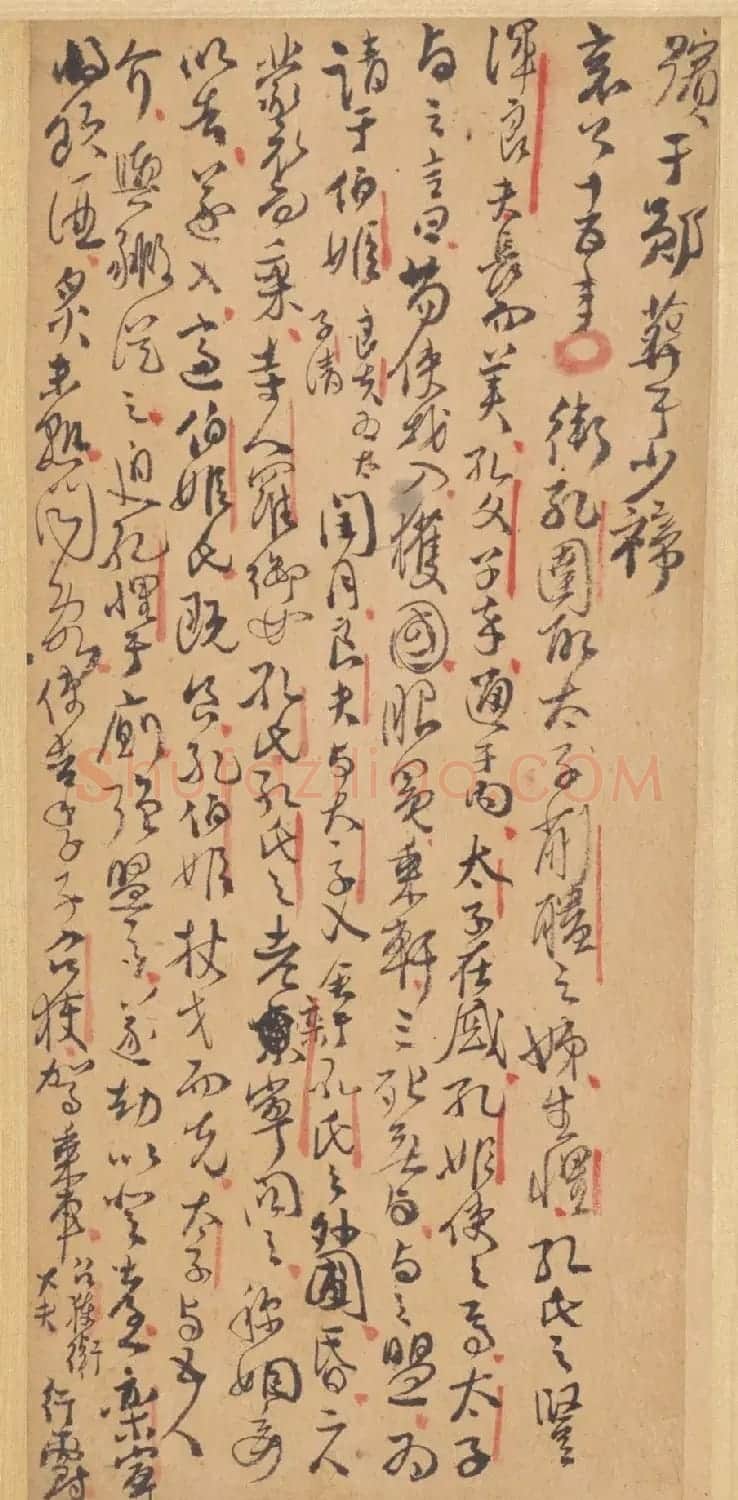 殯于鄖葬于少禘
哀公十五年 衛孔圉取太子蒯聵之姊生悝孔氏之豎
渾良夫長而美孔文子卒通于內太子在戚孔姬使之焉太子
與之言曰苟使我入獲國服冕乘軒三死無與與之盟為
請于伯姬 良夫為太子請 閏月良夫與太子入舍于孔氏之外圃昏二人
蒙衣而乘寺人羅御如孔氏孔氏之老欒寧問之稱姻妾
以告遂入適伯姬氏既食孔伯姬杖戈而先太子與五人
介輿豭從之迫孔悝于廁強盟之遂劫以登臺欒寧
將飲酒炙未熟聞亂使告季子召獲駕乘車 召獲衛大夫 行爵
Shufaziliao.COM